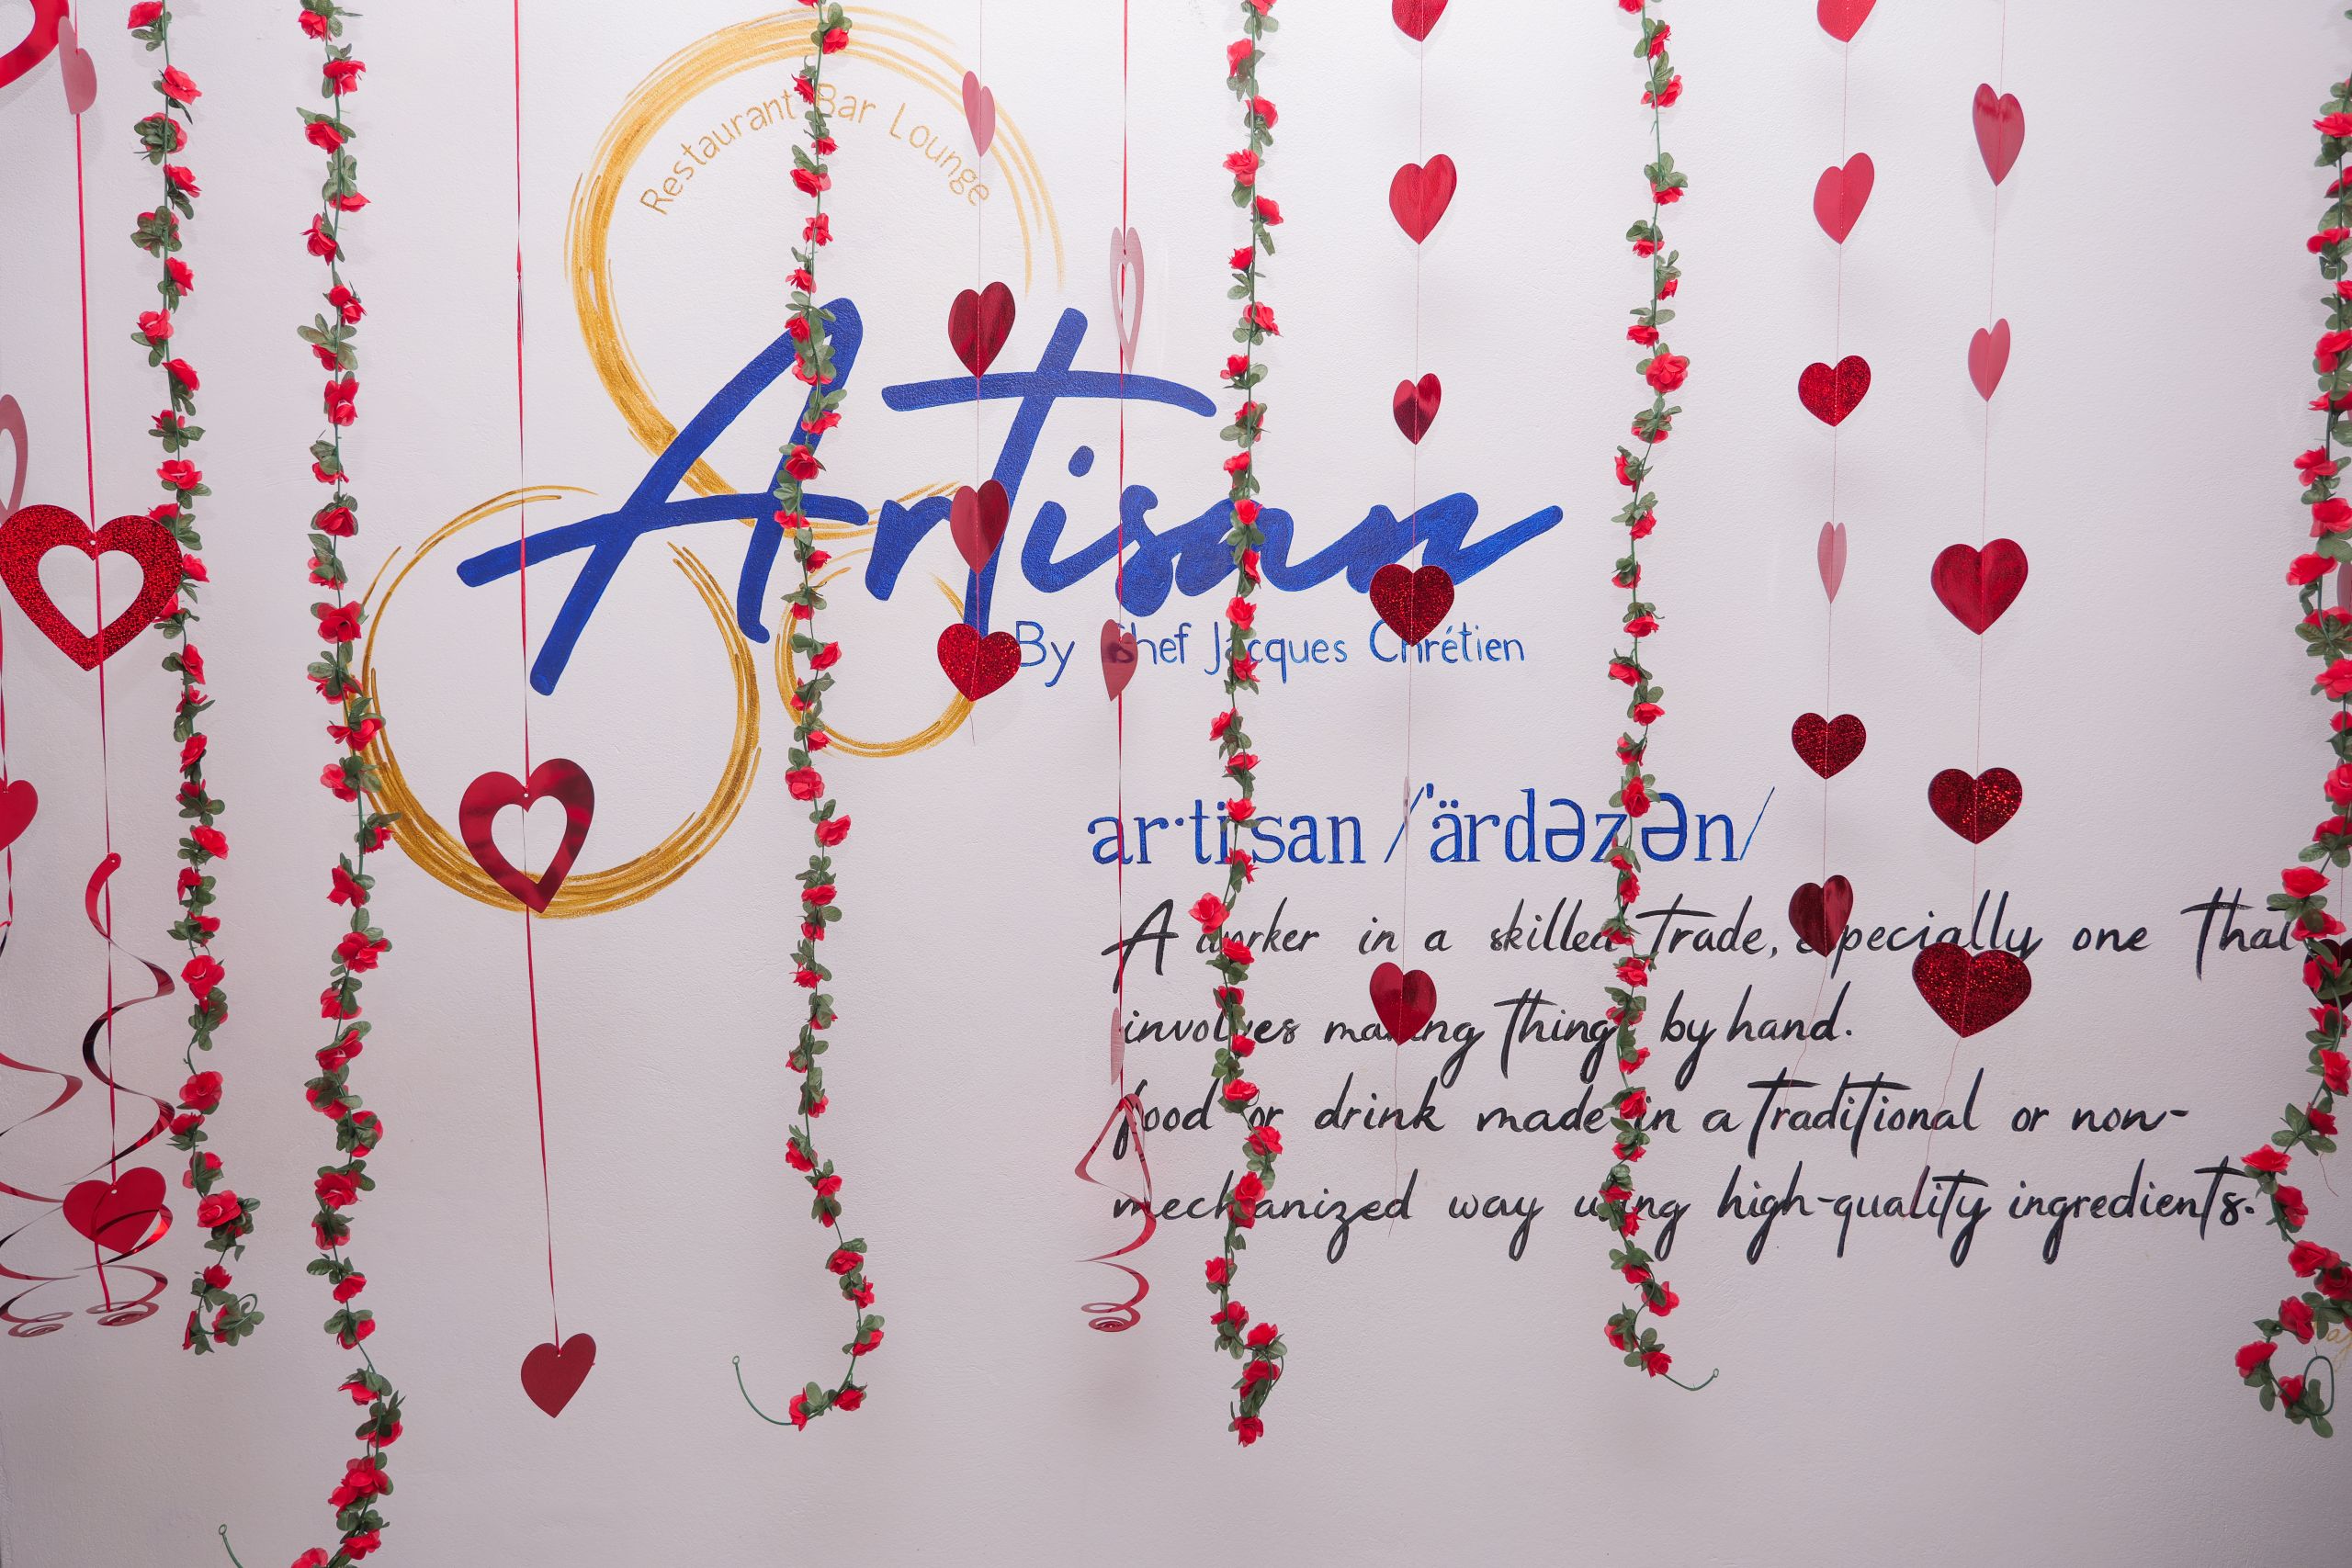 Restaurant Bar Lounge
Artisan
By Chef Jacques Chrétien
ar·ti·san /ˈärdəzən/
A worker in a skilled trade, especially one that
involves making things by hand.
food or drink made in a traditional or non-
mechanized way using high-quality ingredients.